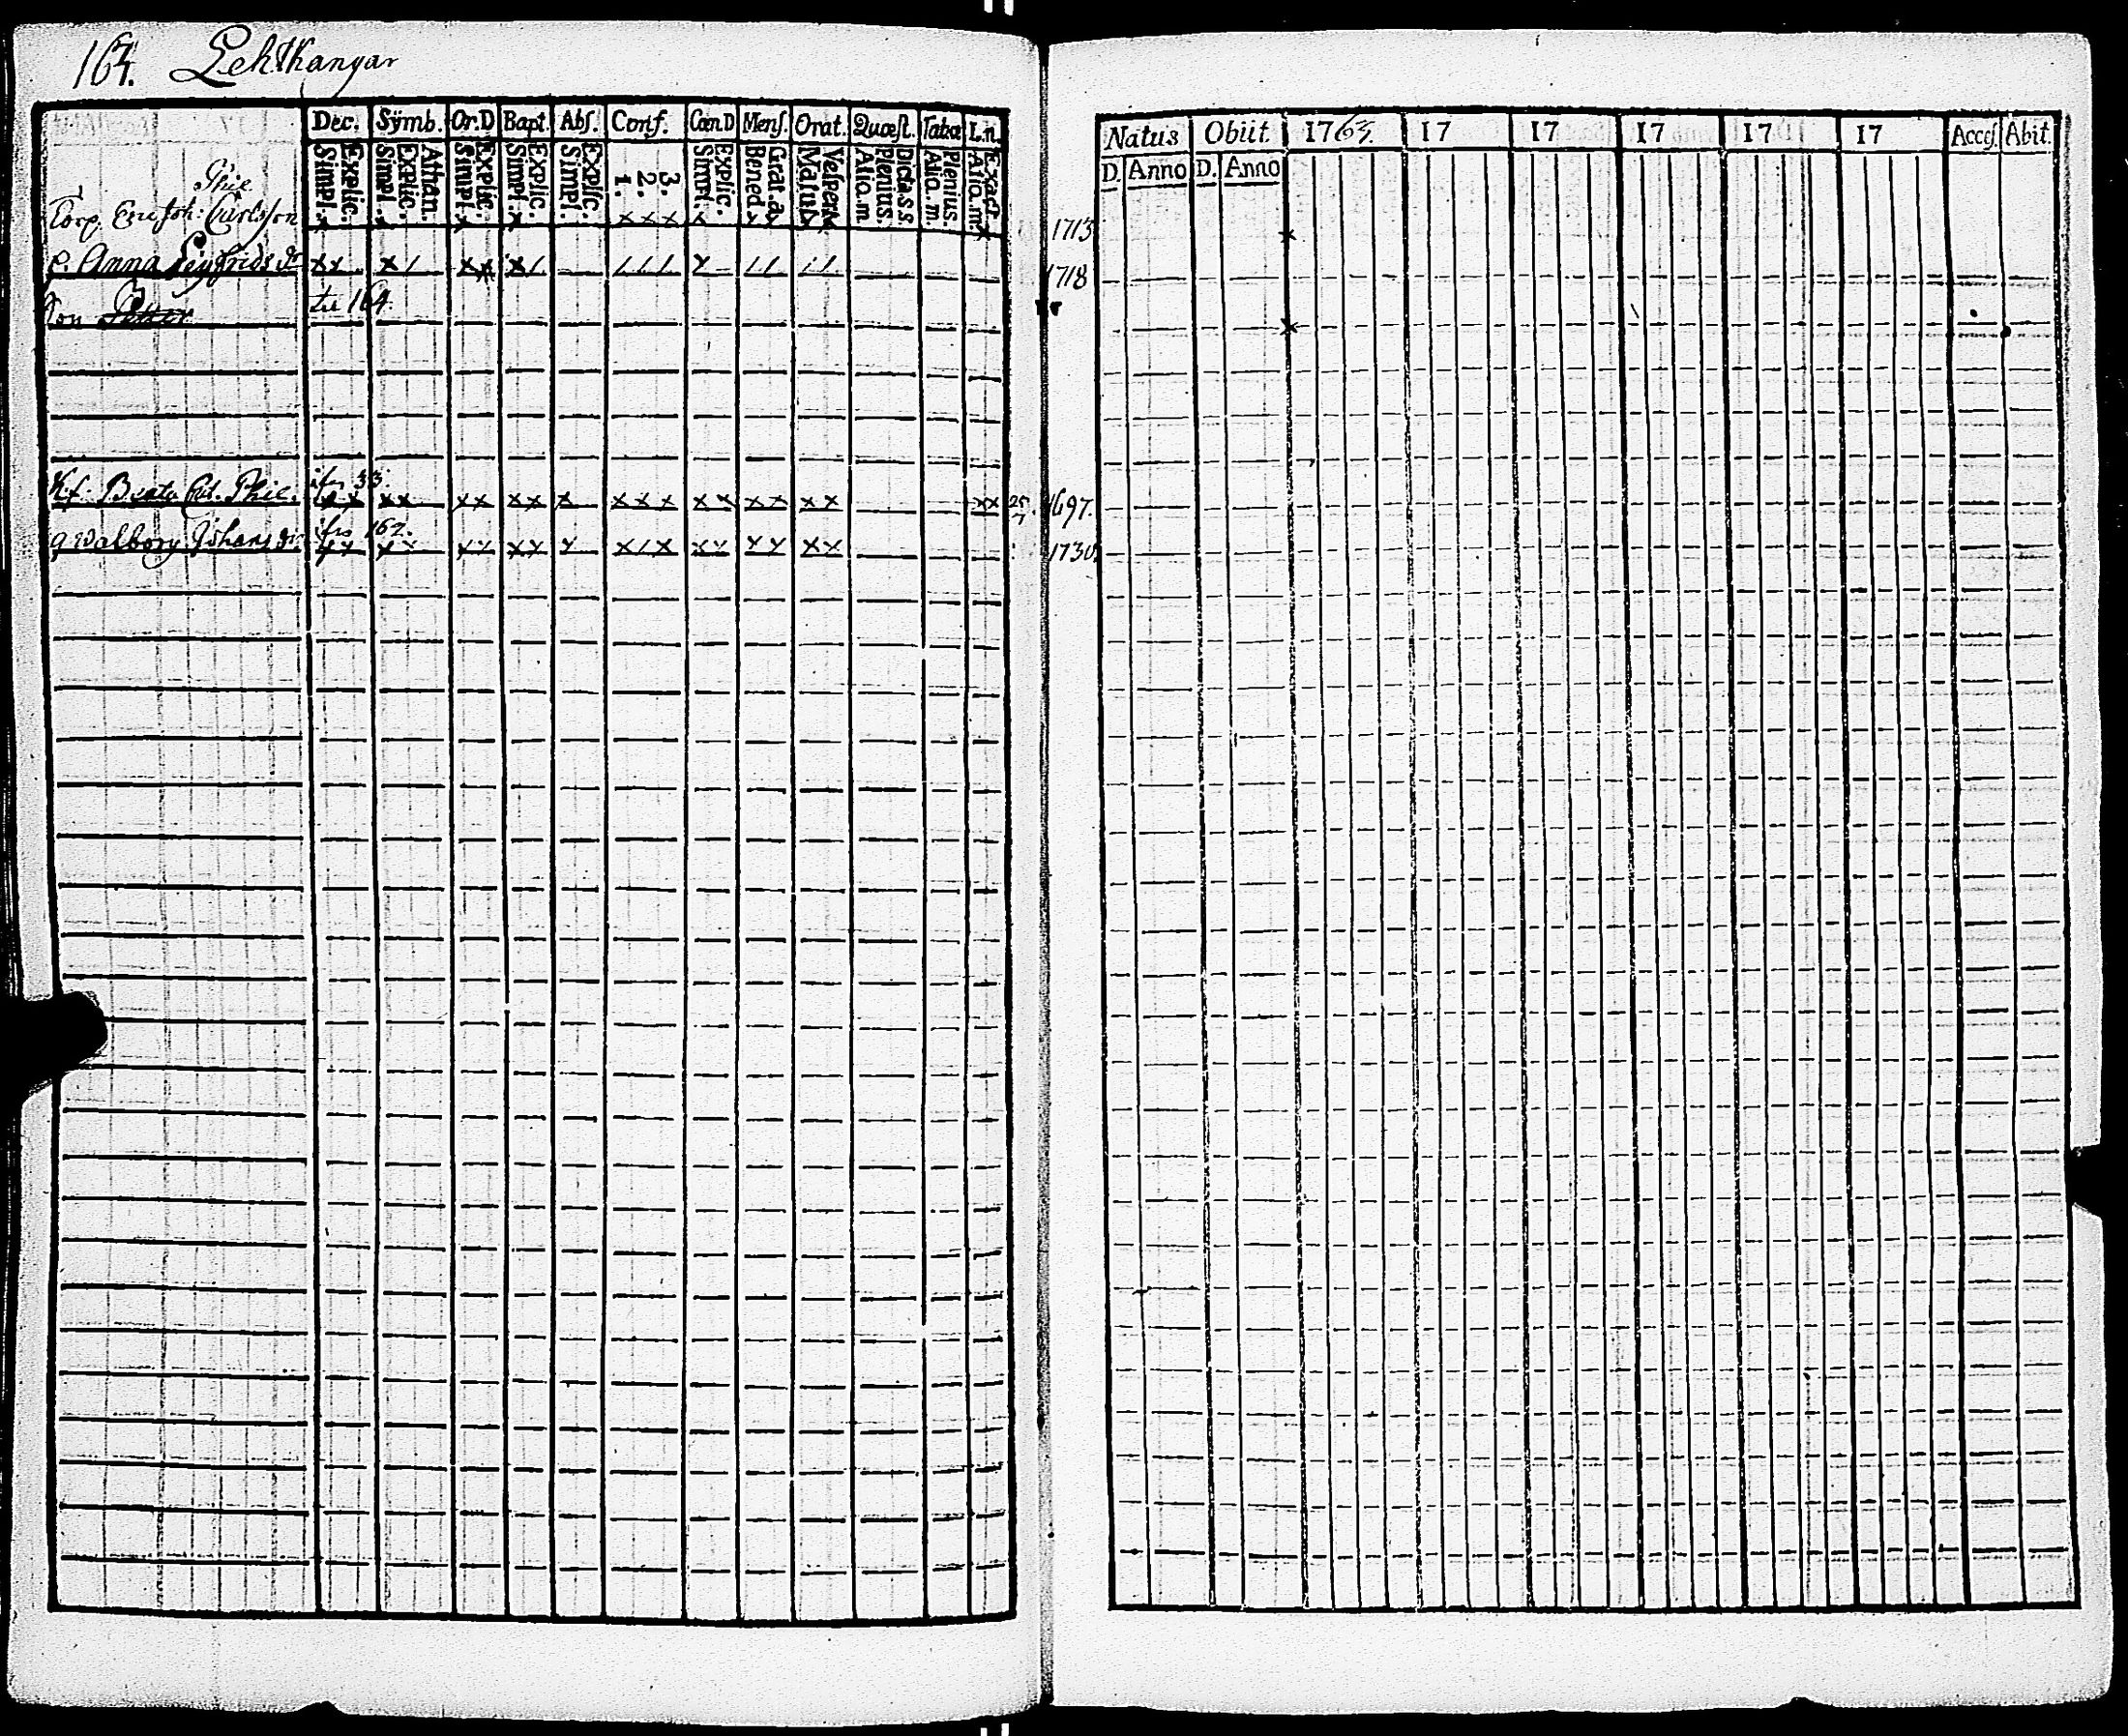 Lehtkangar
Dec. Symb. Or.D Bapt. Abs. Conf. Cœn.D Mens. Orat. Quæst. Tabæ L.n.
Simpl. Explic. Simpl. Explic. Athan. Simpl. Explic. Simpl. Explic. Simpl. Explic. 1. 2. 3. Simpl. Explic. Bened. Grat.a Matut. Vesper. Alio.m. Plenius. Dicta s s Alio.m. Plenius. Alio.m. Exact.
Natus Obiit. 1763. 17 17 17 17 17 Acces. Abit.
D. Anno D. Anno
Phil.
Torp. Eric Joh: Carlsson x x x x x x x x x 1713 x
e. Anna Sigfrids dr x x x / x x x / / / / x / / / / 1718
Son Petter til 164. x
ifrn 33.
Beata Phil. x x x x x x x x x x x x x x x x x x x x 1697.
ifrn 162.
Walborg Johans dr x x x x x x x x x x / x x x x x x x 1730.